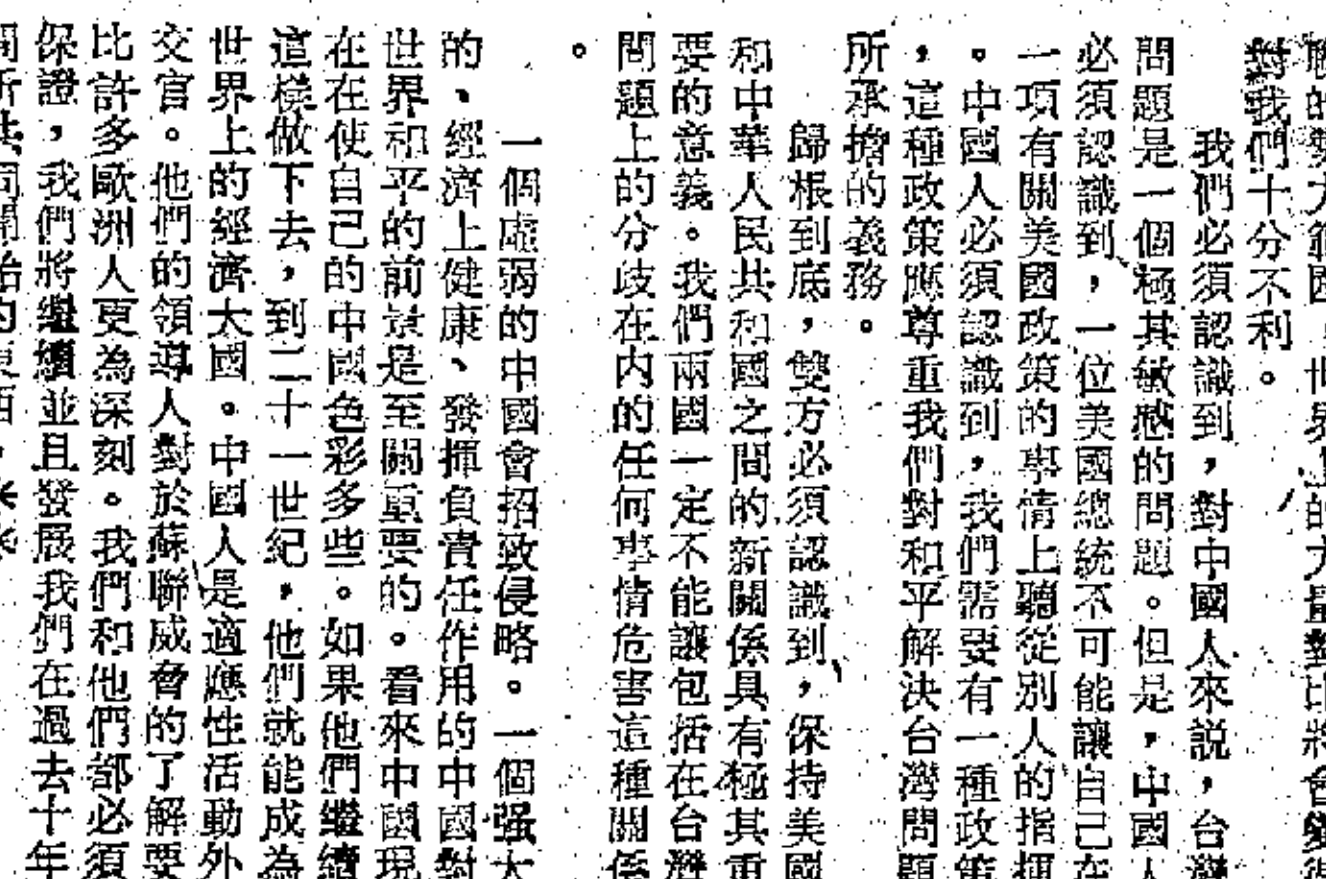 聯的勢力範圍，世界上的力量對比將會變得
對我們十分不利。
我們必須認識到，對中國人來説，台灣
問題是一個極其敏感的問題。但是，中國人
必須認識到，一位美國總統不可能讓自己在
一項有關美國政策的事情上聽從別人的指揮
。中國人必須認識到，我們需要有一種政策
，這種政策應尊重我們對和平解決台灣問題
所承擔的義務。
歸根到底，雙方必須認識到，保持美國
和中華人民共和國之間的新關係具有極其重
要的意義。我們兩國一定不能讓包括在台灣
問題上的分歧在内的任何事情危害這種關係
。
一個虛弱的中國會招致侵略。一個强大
的、經濟上健康、發揮負責任作用的中國對
世界和平的前景是至關重要的。看來中國現
在在使自己的中國色彩多些。如果他們繼續
這樣做下去，到二十一世紀，他們就能成為
世界上的經濟大國。中國人是適應性活動外
交官。他們的領導人對於蘇聯威脅的了解要
比許多歐洲人更為深刻。我們和他們都必須
保證，我們將繼續並且發展我們在過去十年
間所共同開始的東西，